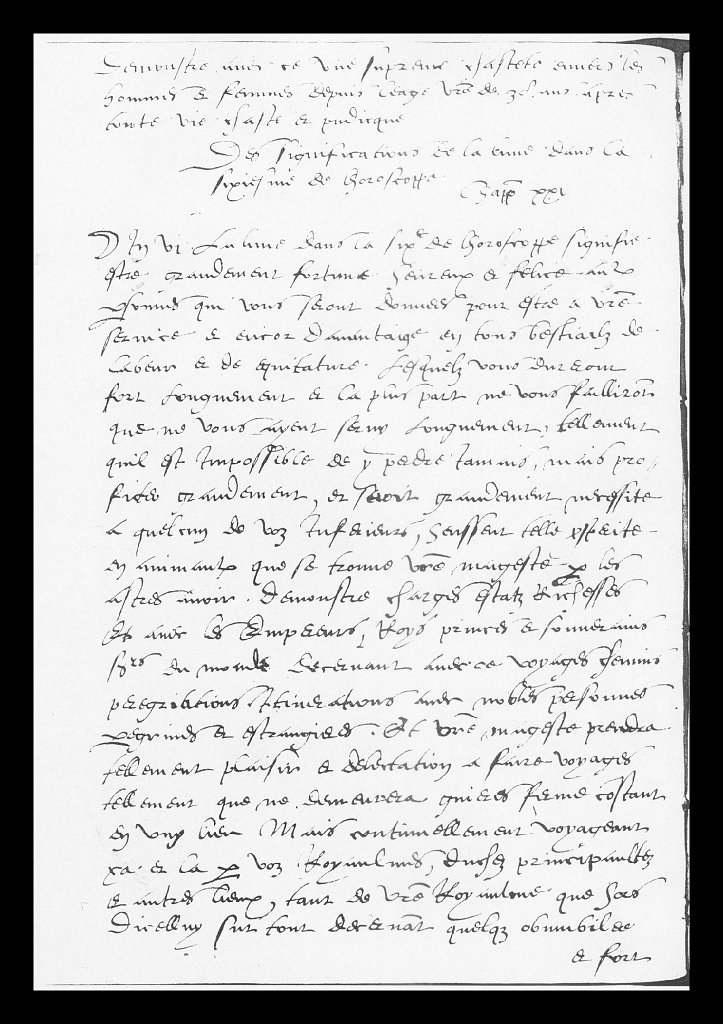 Demonstre avec ce une supreme chastete envers les
hommes et femmes depuis leage vre de 30 ans apres
toute vie chaste et pudicque
Des significations de la lune dans la
sixiesme de lhoroscoppe
Chapp xxi
D In vi La lune dans la six.e de lhoroscoppe signifie
estre grandement fortune heureux et felice aux
qui vous seront donnees pour estre a vre
service et encor davantaige en tous bestiailz de
labeur et de equitature. Lesquelz vous dureront
fort longuement et la plus part ne vous failliront
que ne vous ayent servy longuement, tellement
quil est Impossible de y perdre jamais, mais pro
fiter grandement, et seroit grandement necessite
a quelcun de voz Inferieurs, heussent telle psperite
en animaux que se trouve vre mageste p les
astres avoir. Demonstre charges estatz Richesses
Et avec les Empereurs, Roys princes et souverains
sgrs du monde decernant avec ce voyages chemins
peregrinations Itinerations avec nobles personnes
pegrines et estrangieres. Et vre mageste prendra
tellement plaisir et delectation a faire voyages
tellement que ne demeurera guieres ferme costant
en ung lieu Mais continuellement voyageant
ca et la p voz Royaulmes, duchez principaultez
et autres lieux, tant de vre Royaulme que hors
Dicelluy sur tout decernat quelqz
et fort